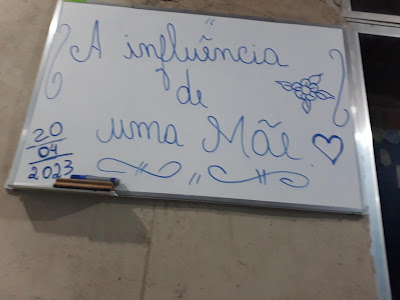 A influência
de
uma Mãe.
20
04
2023